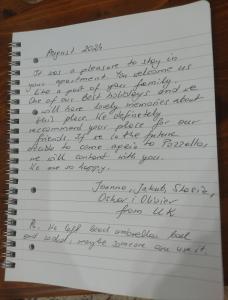 August 2024
It was a pleasure to stay in
your apartment. You welcome us
like a part of your family.
One of our best holidays and we
will have lovely memories about
this place. We definetely
recommend your place for our
friends. If we in the future
decide to come again to Pozzallo,
we will contact with you.
We are so happy.
Joanna, Jakub,
Oskar i Oliwier
from UK
Ps. We left beach umbrellas,
and, maybe someone can use it.